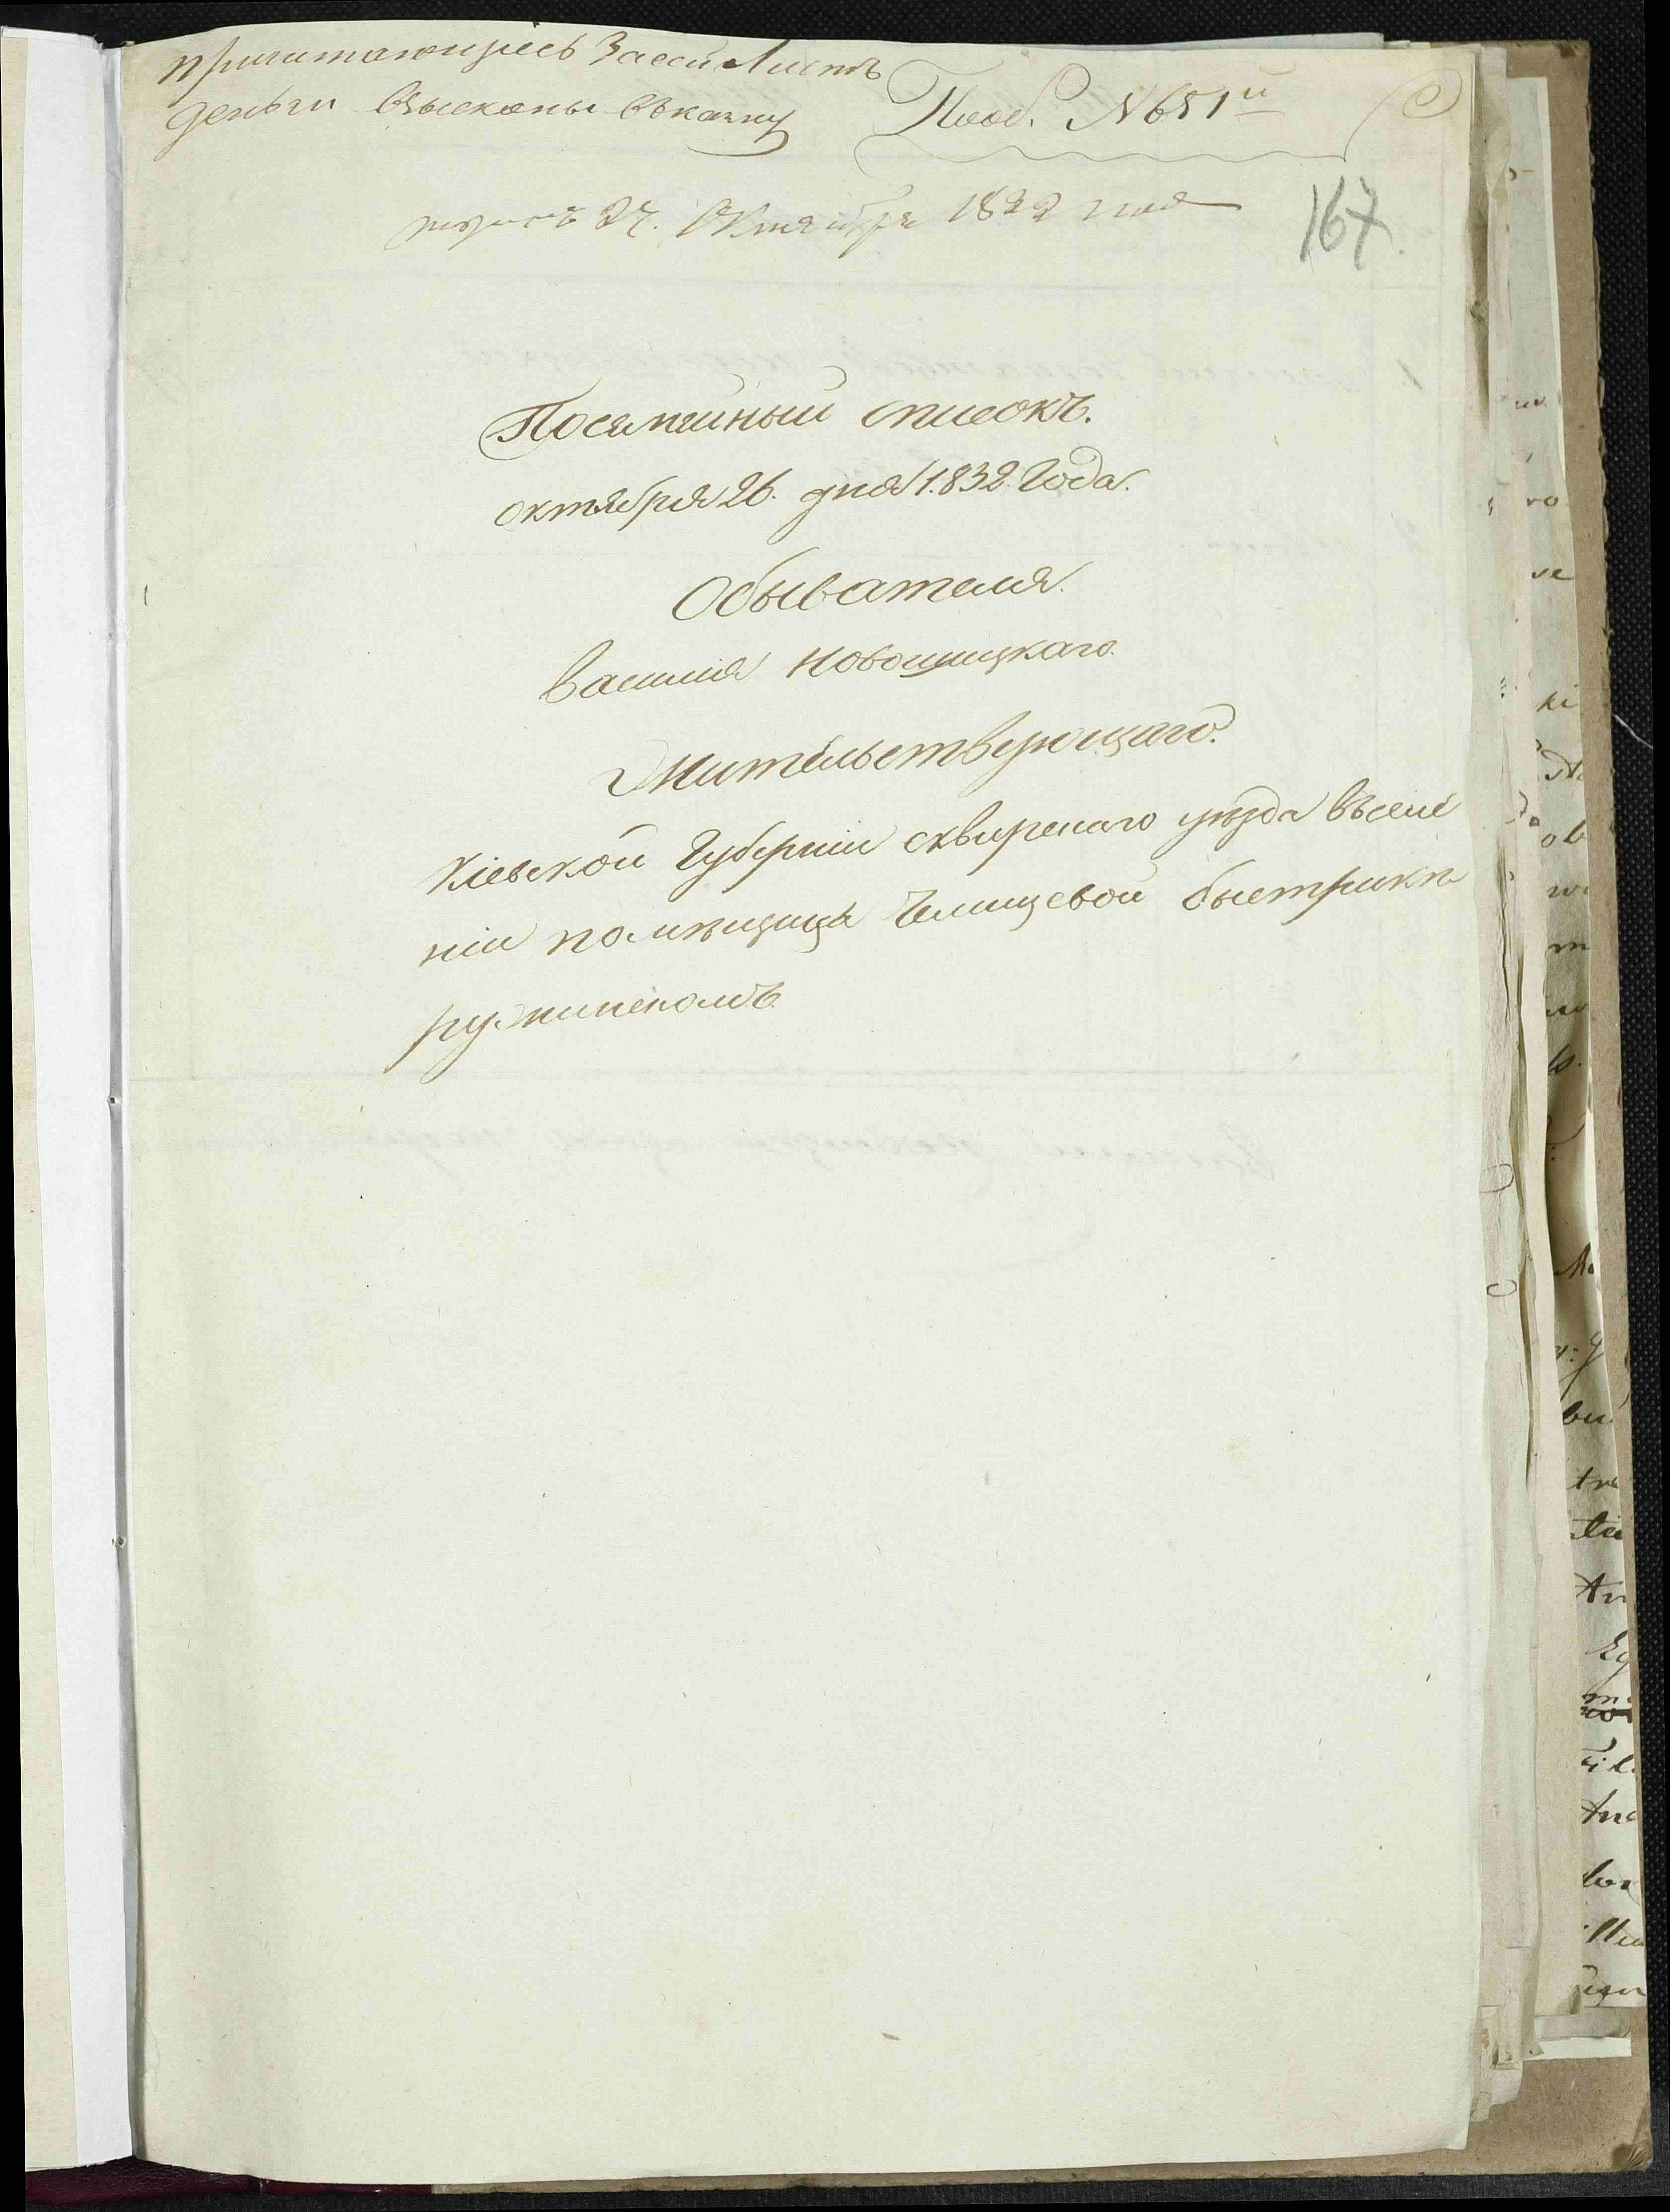 причитающiесь За сей Листъ
деньги взысканы въ казну
№ 651й
27. Октября 1832 года
167.
Посемейный списокъ.
октября 26. дня 1832. Года.
Обывателя.
василiя новошицкаго.
Жительствующаго.
Кiевской Губернiи сквирскаго уѣзда въ селе
нiи помѣщица Челищевой быстрикѣ
ружинскомъ